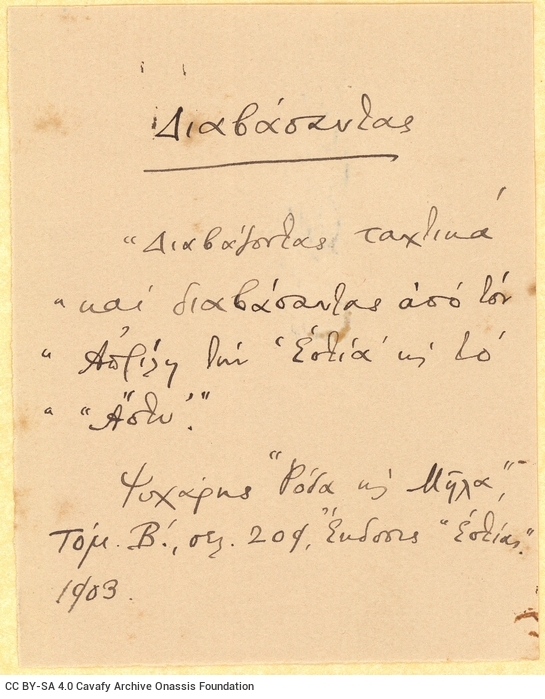 Διαβάσαντας
“Διαβάζοντας ταχτικά
“ καί διαβάσαντας ἀπό τόν
“ Ἀπρίλη τήν ‘Ἑστία’ κη τό
“ “Ἄστυ’.”
Ψυχάρης “Ρόδα κη Μῆλα”,
Τόμ. Β΄., σελ. 209, Ἔκδοσις “Ἑστίας.”
1903.
CC BY-SA 4.0 Cavafy Archive Onassis Foundation